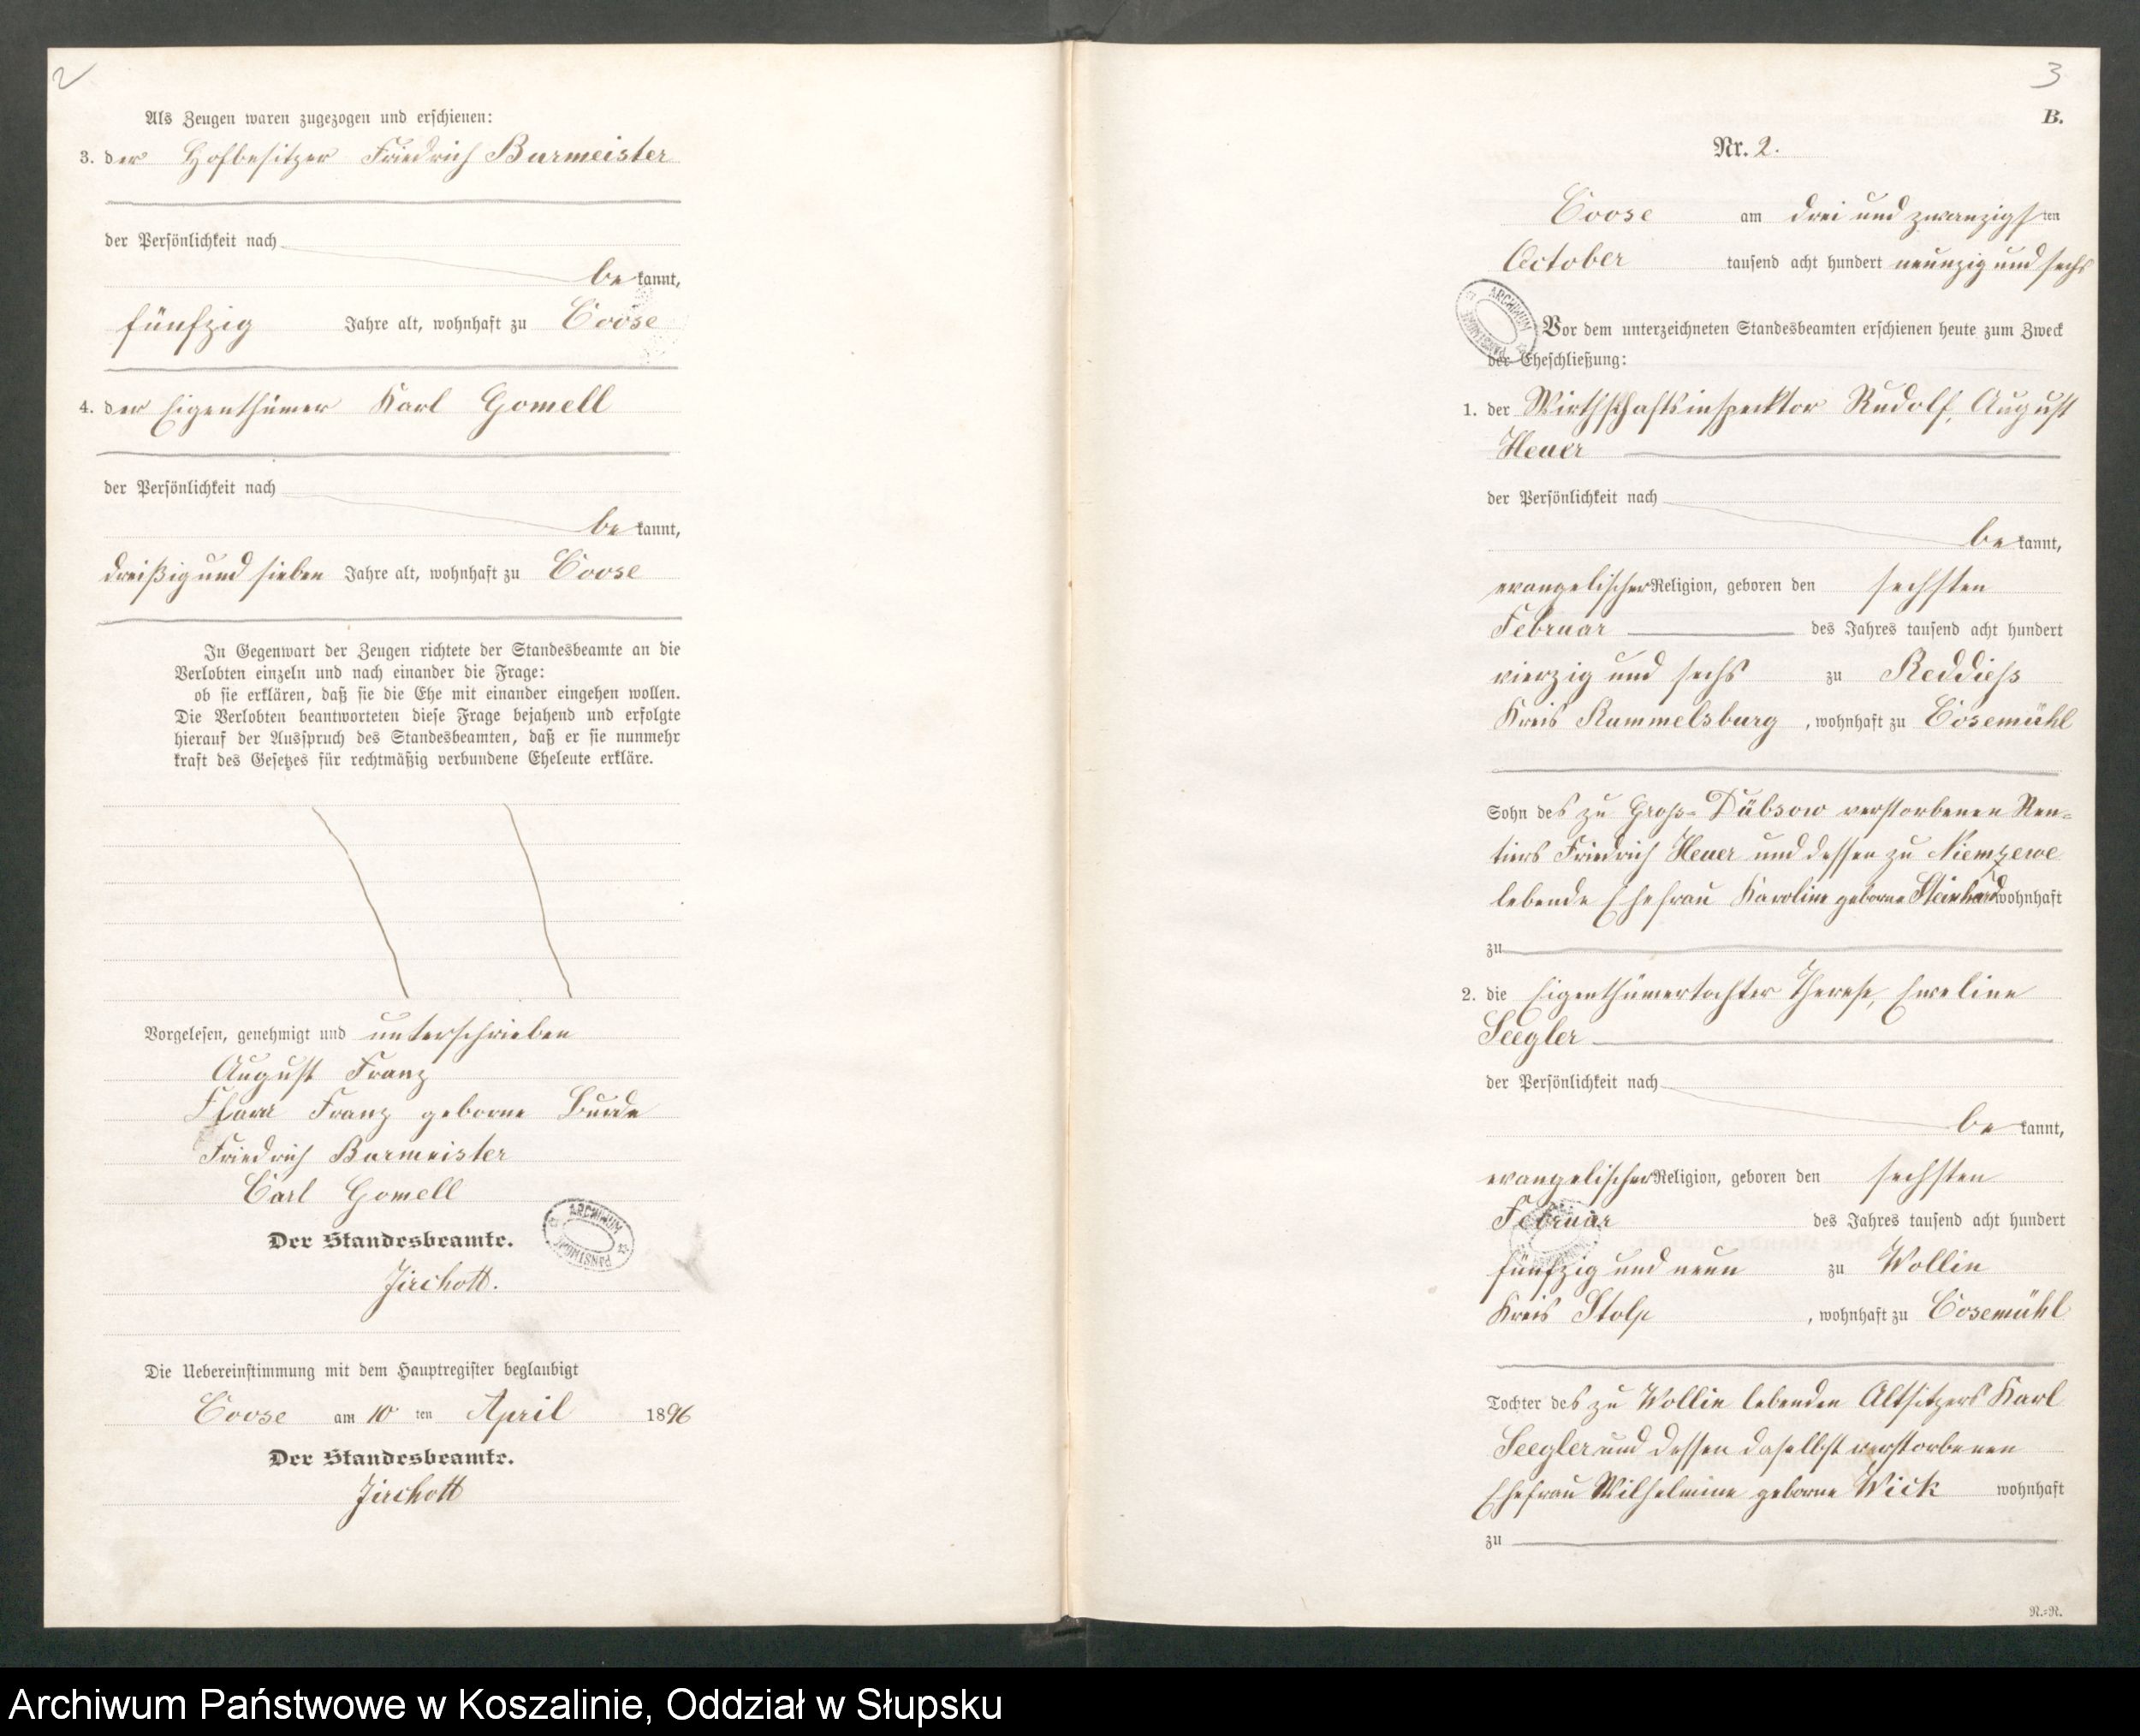 2
Als Zeugen waren zugezogen und erschienen:
3. der Hofbesitzer Friedrich Burmeister
der Persönlichkeit nach
bekannt,
fünfzig Jahre alt, wohnhaft zu Coose
4. der Eigenthümer Karl Gomell
der Persönlichkeit nach
bekannt,
dreißig und sieben Jahre alt, wohnhaft zu Coose
In Gegenwart der Zeugen richtete der Standesbeamte an die
Verlobten einzeln und nach einander die Frage:
ob sie erklären, daß sie die Ehe mit einander eingehen wollen.
Die Verlobten beantworteten diese Frage bejahend und erfolgte
hierauf der Ausspruch des Standesbeamten, daß er sie nunmehr
kraft des Gesetzes für rechtmäßig verbundene Eheleute erkläre.
Vorgelesen, genehmigt und unterschrieben
August Franz
Franz geborne
Friedrich Burmeister
Carl Gomell
Der Standesbeamte.
Jirchott.
ARCHIWUM PAŃSTWOWE
Die Uebereinstimmung mit dem Hauptregister beglaubigt
Coose am 10 ten April 1896
Der Standesbeamte.
Jirchott
3
B.
Nr. 2.
Coose am drei und zwanzigsten
October tausend acht hundert neunzig und sechs
ARCHIWUM PAŃSTWOWE
Vor dem unterzeichneten Standesbeamten erschienen heute zum Zweck
der Eheschließung:
1. der Wirthschaftsinspecktor Rudolf, August
Heuer
der Persönlichkeit nach
bekannt,
evangelischer Religion, geboren den sechsten
Februar des Jahres tausend acht hundert
vierzig und sechs zu Reddiess
Kreis Rummelsburg, wohnhaft zu Cosemühl
Sohn des zu Gross-Dübsow verstorbenen Ren-
tiers Friedrich Heuer und dessen zu Niemzewe
lebende Ehefrau Karoline geborne Steinhard wohnhaft
zu
2. die Eigenthümertochter Therese, Eveline
Seegler
der Persönlichkeit nach
bekannt,
evangelischer Religion, geboren den sechsten
Februar des Jahres tausend acht hundert
fünfzig und neun zu Wollin
Kreis Stolp, wohnhaft zu Cosemühl
Tochter des zu Wollin lebenden Altsitzers Karl
Seegler und dessen daselbst verstorbenen
Ehefrau Wilhelmine geborne Wick wohnhaft
zu
R.=R.
Archiwum Państwowe w Koszalinie, Oddział w Słupsku